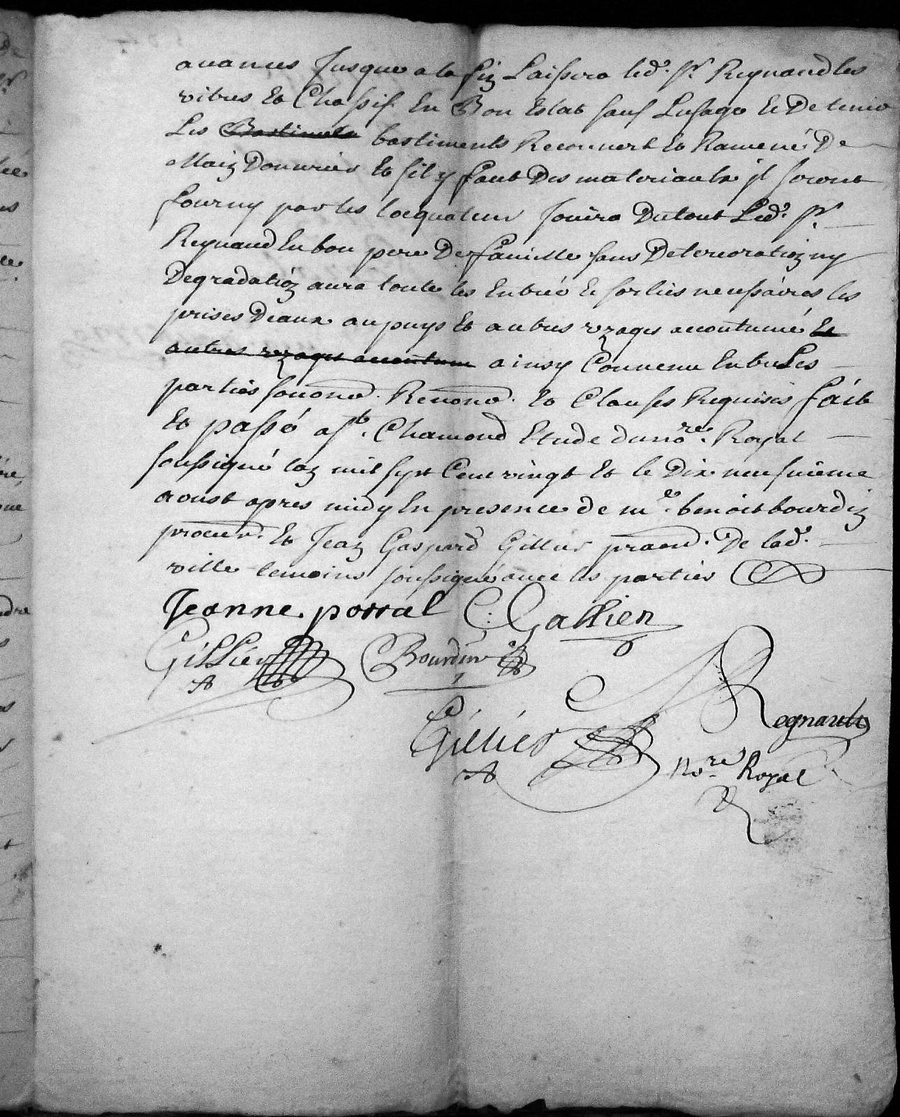 avances Jusque a la fin Laissera led. Sr. Regnaud les
vitres Et Chassif En Bon Estat sauf Lusage Et De tenir
Les Bastiments bastiments Recouvert Et Ramené De
Main Douvrier Et sil y faut Des materiaulx jl seront
fourny par les locquateur Jouira Dutout Led. Sr.
Regnaud En bon pere De famille sans Deterioration ny
Degradation aura toute les Entrée Et sorties nessaires les
prises Deaux au puys Et autres uzages accoutumé Et
autres uzages accoutume ainsy Convenu Entre Les
parties Renond. Et Clauses Requises fait
Et passé a St. Chamond Etude du nore. Royal
soussigné Lan mil sept Cent vingt Et le Dix neufvieme
aoust apres midy En presence de me. benoit bourdin
procur. Et Jean Gaspard Gillier pratid. De lad.
ville temoins soussigné avec les parties
Jeanne poral C. Gallien
Gillier Bourdin
Gillier Regnault
Nore. Royal